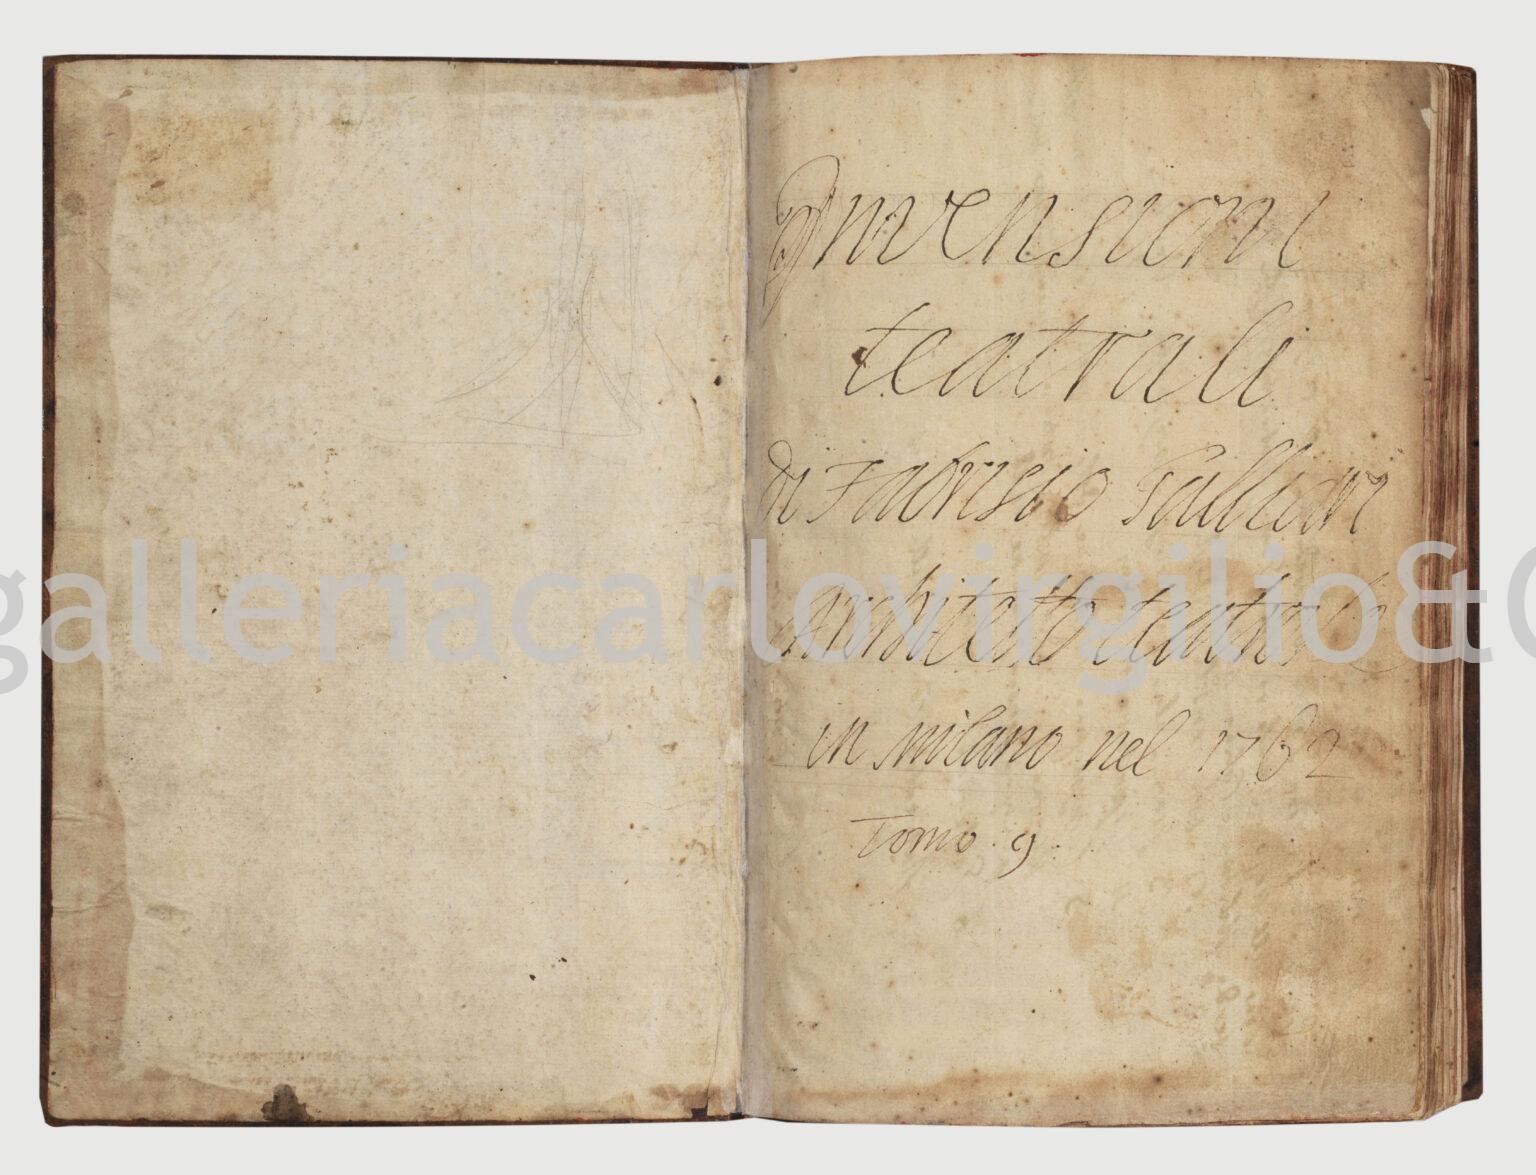 Invensioni
teatrali
di Fabrisio Galliari
Architetto teatrale
in Milano nel 1762
Tomo 9.
galleriacarlovirgilio&C